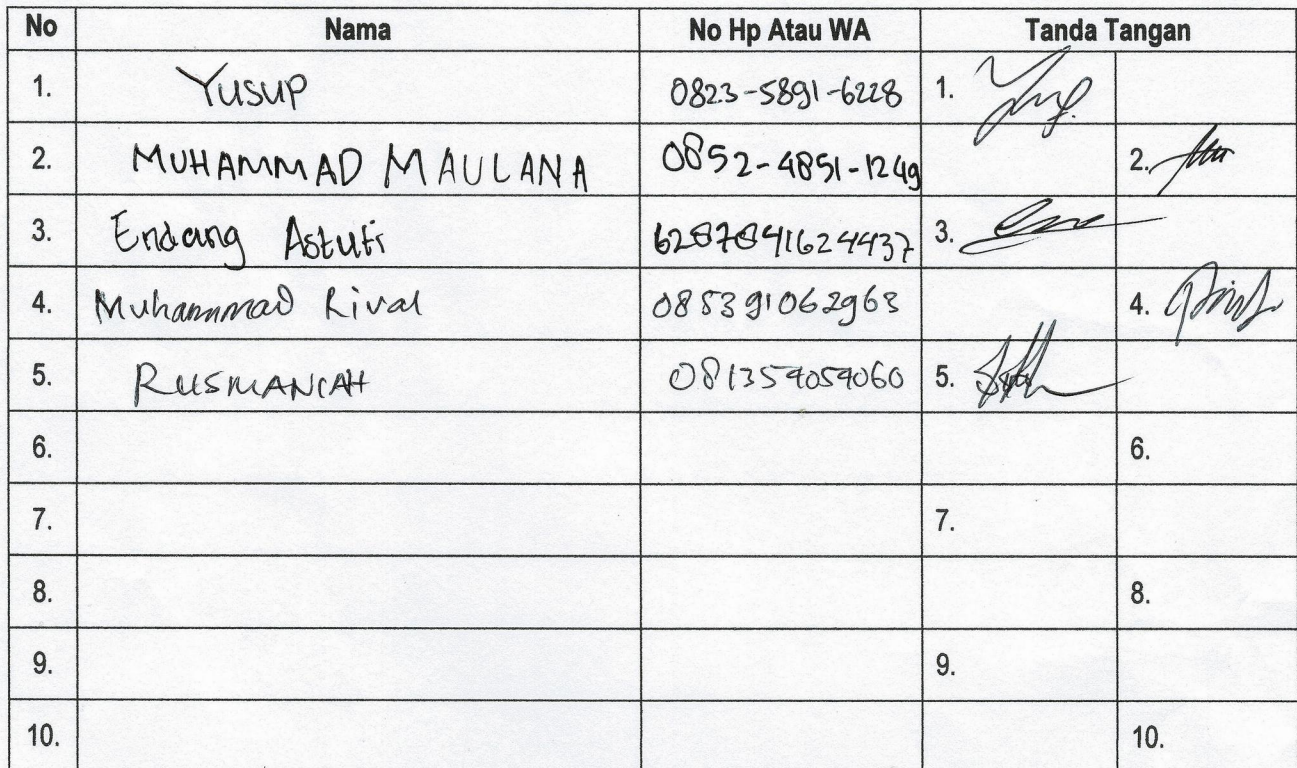 No Nama No Hp Atau WA Tanda Tangan
1. Yusup 0823-5891-6228 1.
2. MUHAMMAD MAULANA 0852-4851-1249 2.
3. Endang Astuti 6287841624437 3.
4. Muhammad Rival 085391062963 4.
5. RUSMANIAH 081354054060 5.
6. 6.
7. 7.
8. 8.
9. 9.
10. 10.